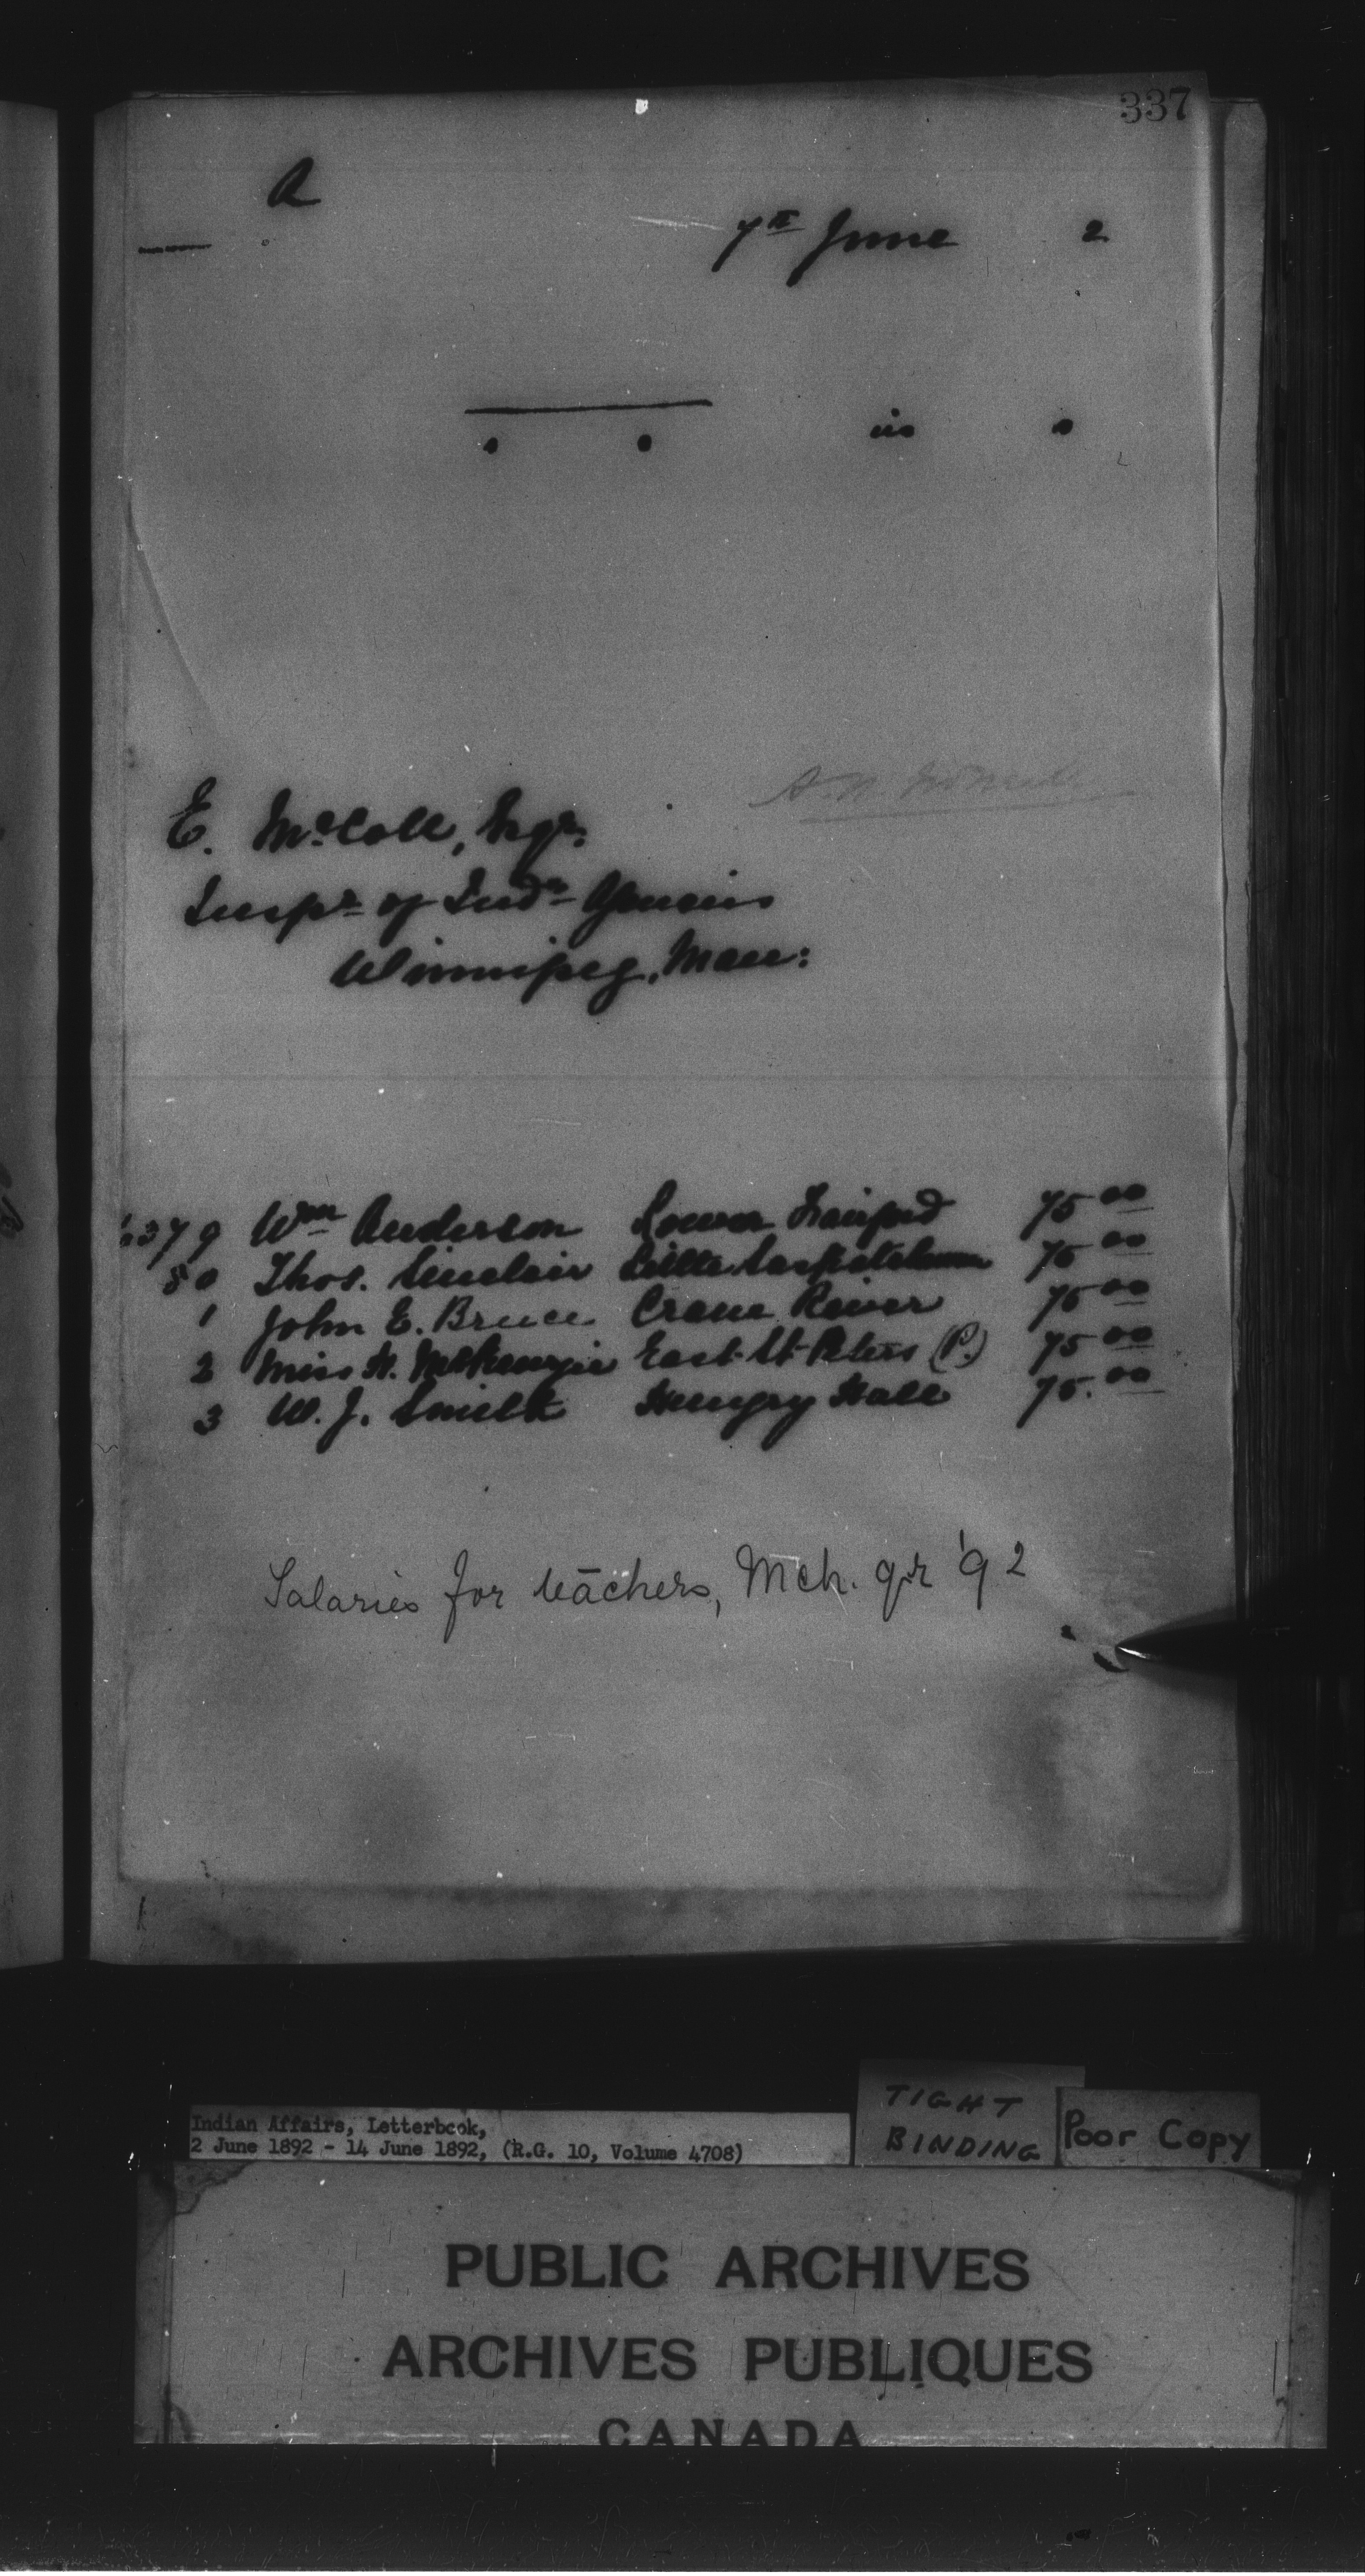 337
A
7th June 2
in
E. McColl, Esqr.
Inspr. of Indn. Agencies
Winnipeg, Man:
6379 Wm Anderson Lower Fairford 75 00
80 Thos. Sinclair Little Saskatchewan 75 00
1 John E. Bruce Crane River 75 00
2 Miss H. McKenzie East St. Peters (P.) 75 00
3 W. J. Smith Hungry Hall 75. 00
Salaries for teachers, Mch. qr '92
Indian Affairs, Letterbook,
2 June 1892 - 14 June 1892, (R.G. 10, Volume 4708)
TIGHT
BINDING
Poor Copy
PUBLIC ARCHIVES
ARCHIVES PUBLIQUES
CANADA